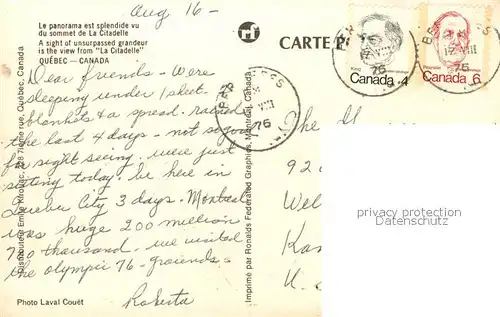 Le panorama est splendide vu
du sommet de La Citadelle
A sight of unsurpassed grandeur
is the view from "La Citadelle"
QUÉBEC — CANADA
Aug 16 -
Dear friends - Were
sleeping under 1 sheet
blankets & a spread. rained
the last 4 days - not so good
for sight seeing. were just
sitting today. be here in
Quebec City 3 days. Montreal
was huge 200 million
700 thousand. we visited
the olympic 76 - grounds.
Roberta
Photo Laval Couët
Distribution Émile Kirouac, 1628 7ième rue, Québec, Canada
Imprimé par Ronalds Federated Graphics, Montréal, Canada
CARTE P
VIII
76
King
Canada 4
VIII
76
Pearson
Canada 6
17 VIII
76
The
92
Wel
Kan
U.
property protection
Datenschutz